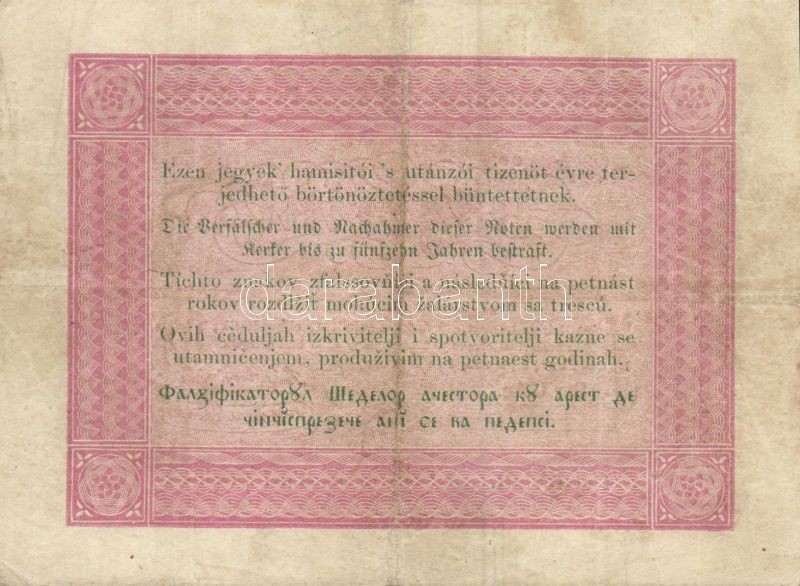 Ezen jegyek' hamisitói 's utánzói tizenöt évre ter-
jedhető börtönöztetéssel büntettetnek.
Die Verfälscher und Nachahmer dieser Noten werden mit
Kerker bis zu fünfzehn Jahren bestraft.
Tíchto znakov zfalssovňíci a násladůící na petnást
rokov rozďížit mohúcím žalárstvom sa trescú.
darabanth
Ovih cèduljah izkrivitelji i spotvoritelji kazne se
utamničenjem, produživim na petnaest godinah.
Фалꙋіфікаторꙋл Шеделор ачестора кꙋ арест де
чінчіспрезече ані се ва педепсі.